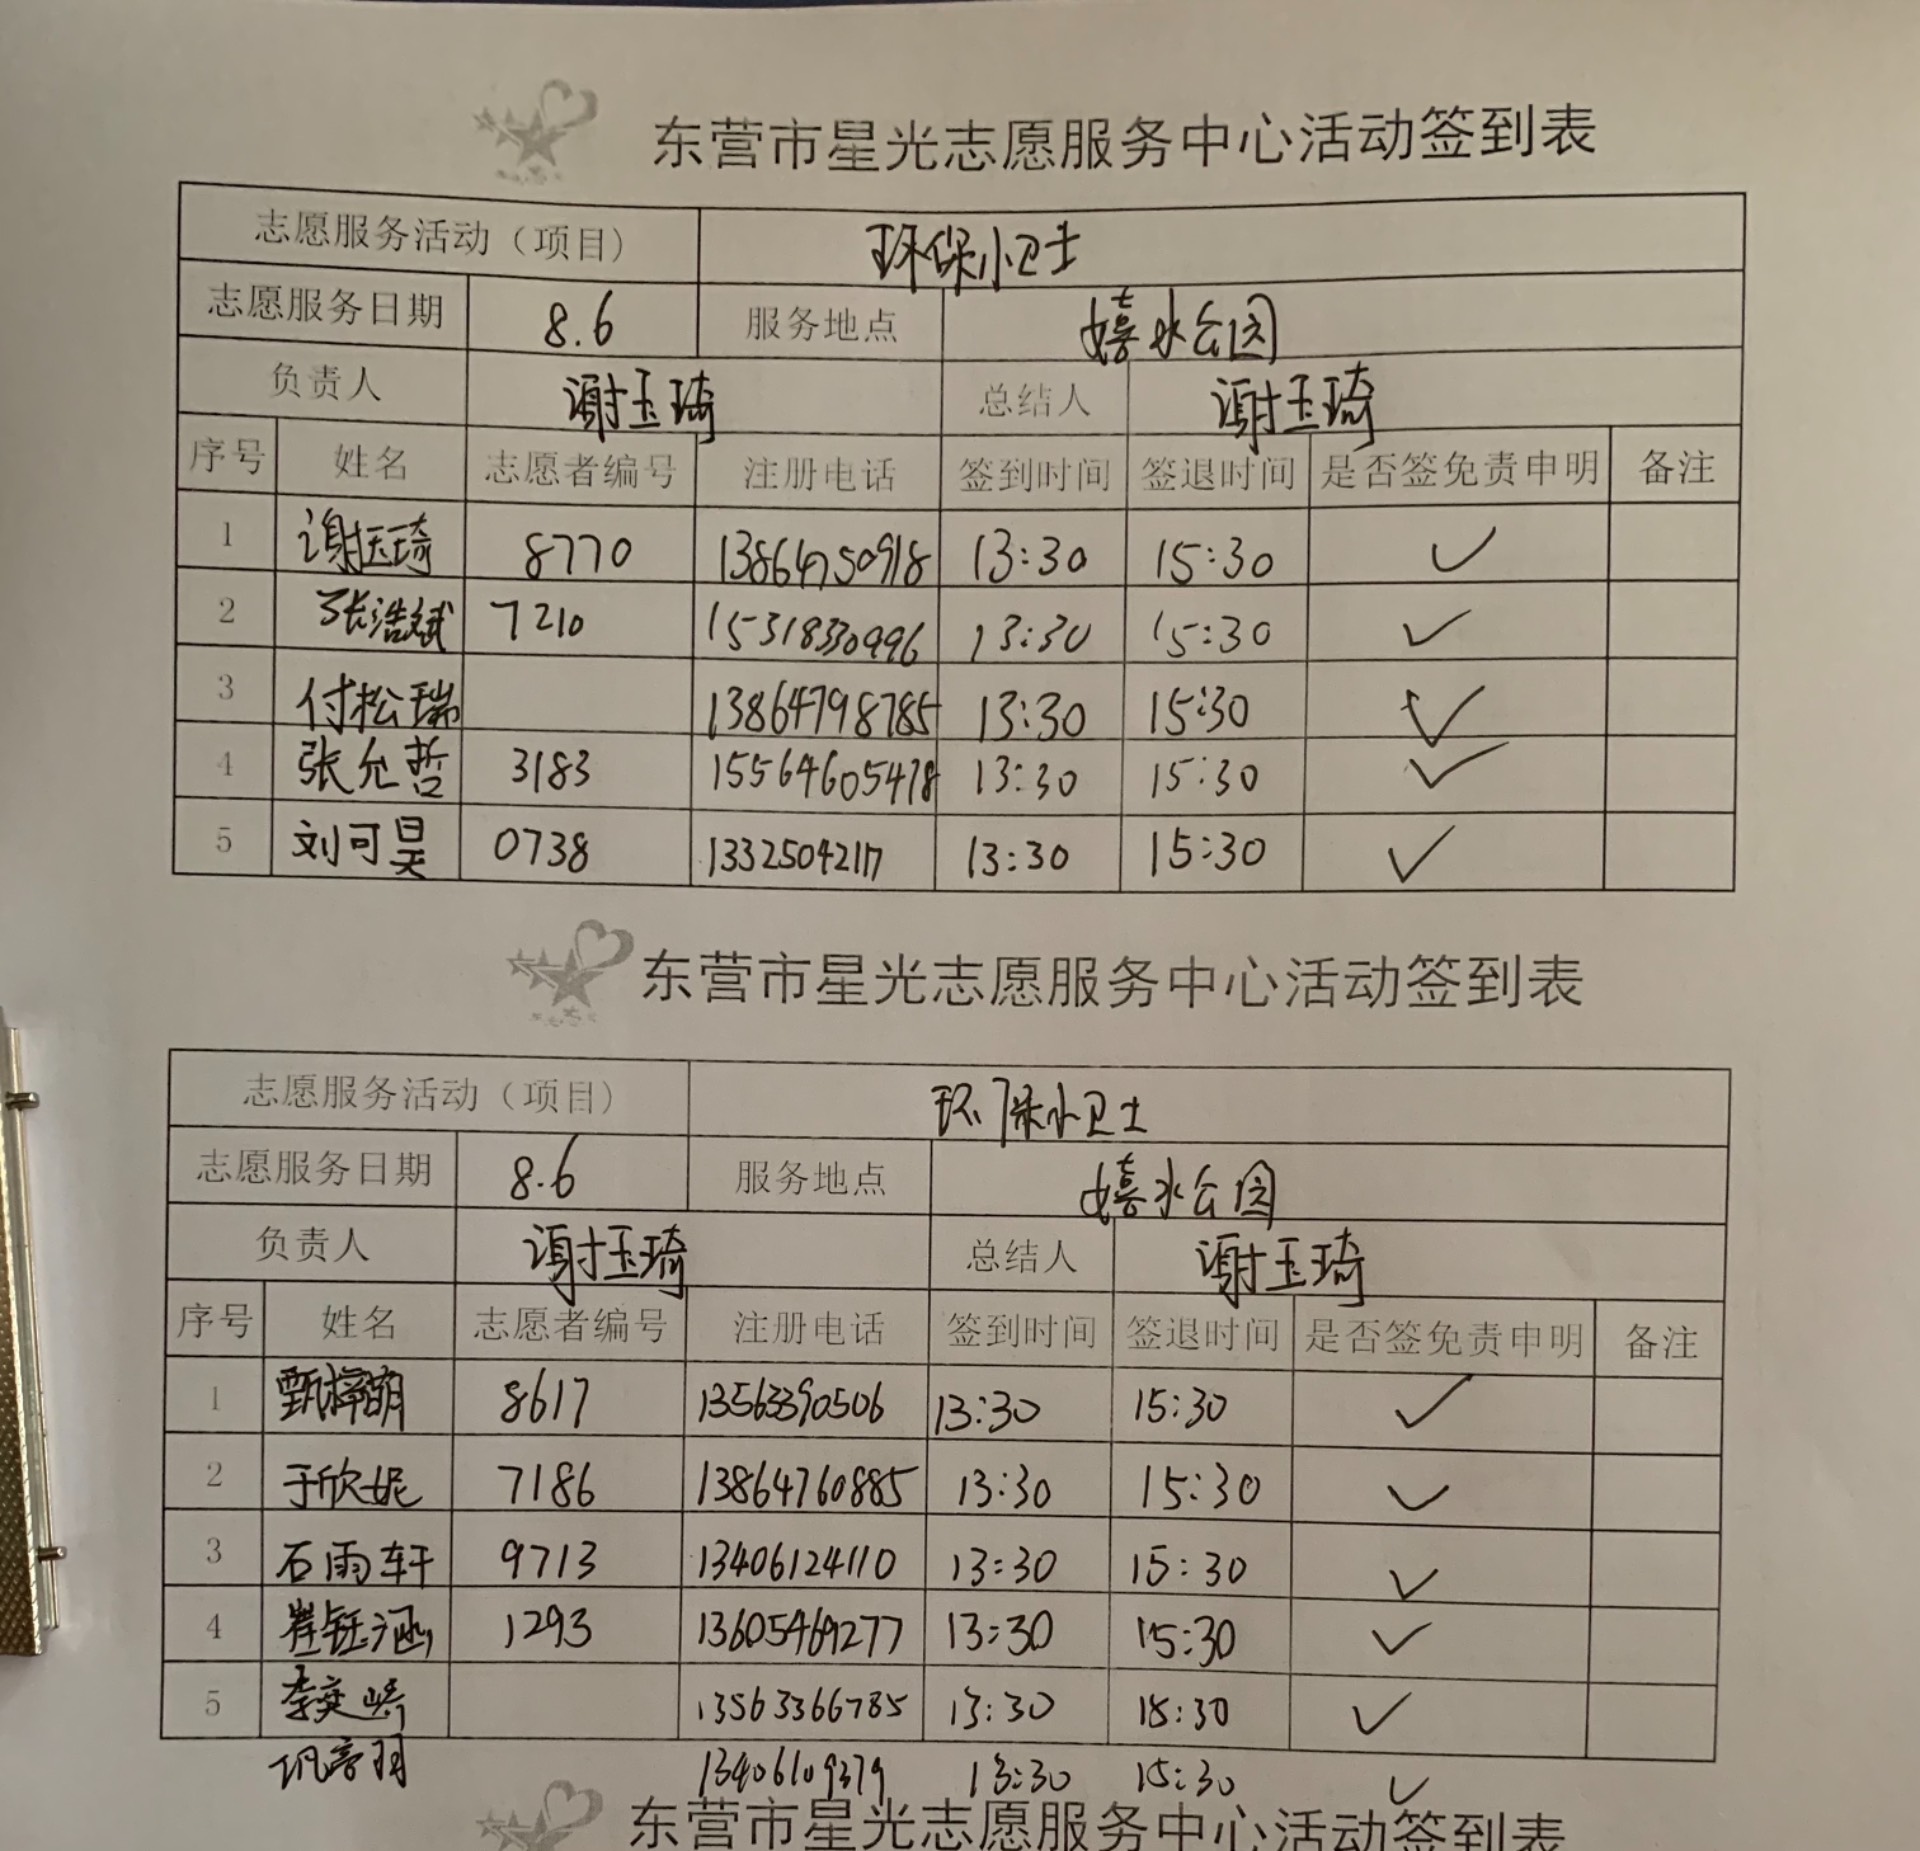 东营市星光志愿服务中心活动签到表
志愿服务活动（项目） 环保小卫士
志愿服务日期 8.6 服务地点 嬉水公园
负责人 谢玉琦 总结人 谢玉琦
序号 姓名 志愿者编号 注册电话 签到时间 签退时间 是否签免责申明 备注
1 谢玉琦 8770 13864750918 13:30 15:30 ✓
2 张浩斌 7210 15318330996 13:30 15:30 ✓
3 付松瑞 13864798785 13:30 15:30 ✓
4 张允哲 3183 15564605478 13:30 15:30 ✓
5 刘可昊 0738 13325042117 13:30 15:30 ✓
东营市星光志愿服务中心活动签到表
志愿服务活动（项目） 环保小卫士
志愿服务日期 8.6 服务地点 嬉水公园
负责人 谢玉琦 总结人 谢玉琦
序号 姓名 志愿者编号 注册电话 签到时间 签退时间 是否签免责申明 备注
1 8617 13563390506 13:30 15:30 ✓
2 于欣妮 7186 13864760885 13:30 15:30 ✓
3 石雨轩 9713 13406124110 13:30 15:30 ✓
4 崔钰涵 1293 13605469277 13:30 15:30 ✓
5 13563366785 13:30 15:30 ✓
13406109379 13:30 15:30 ✓
东营市星光志愿服务中心活动签到表